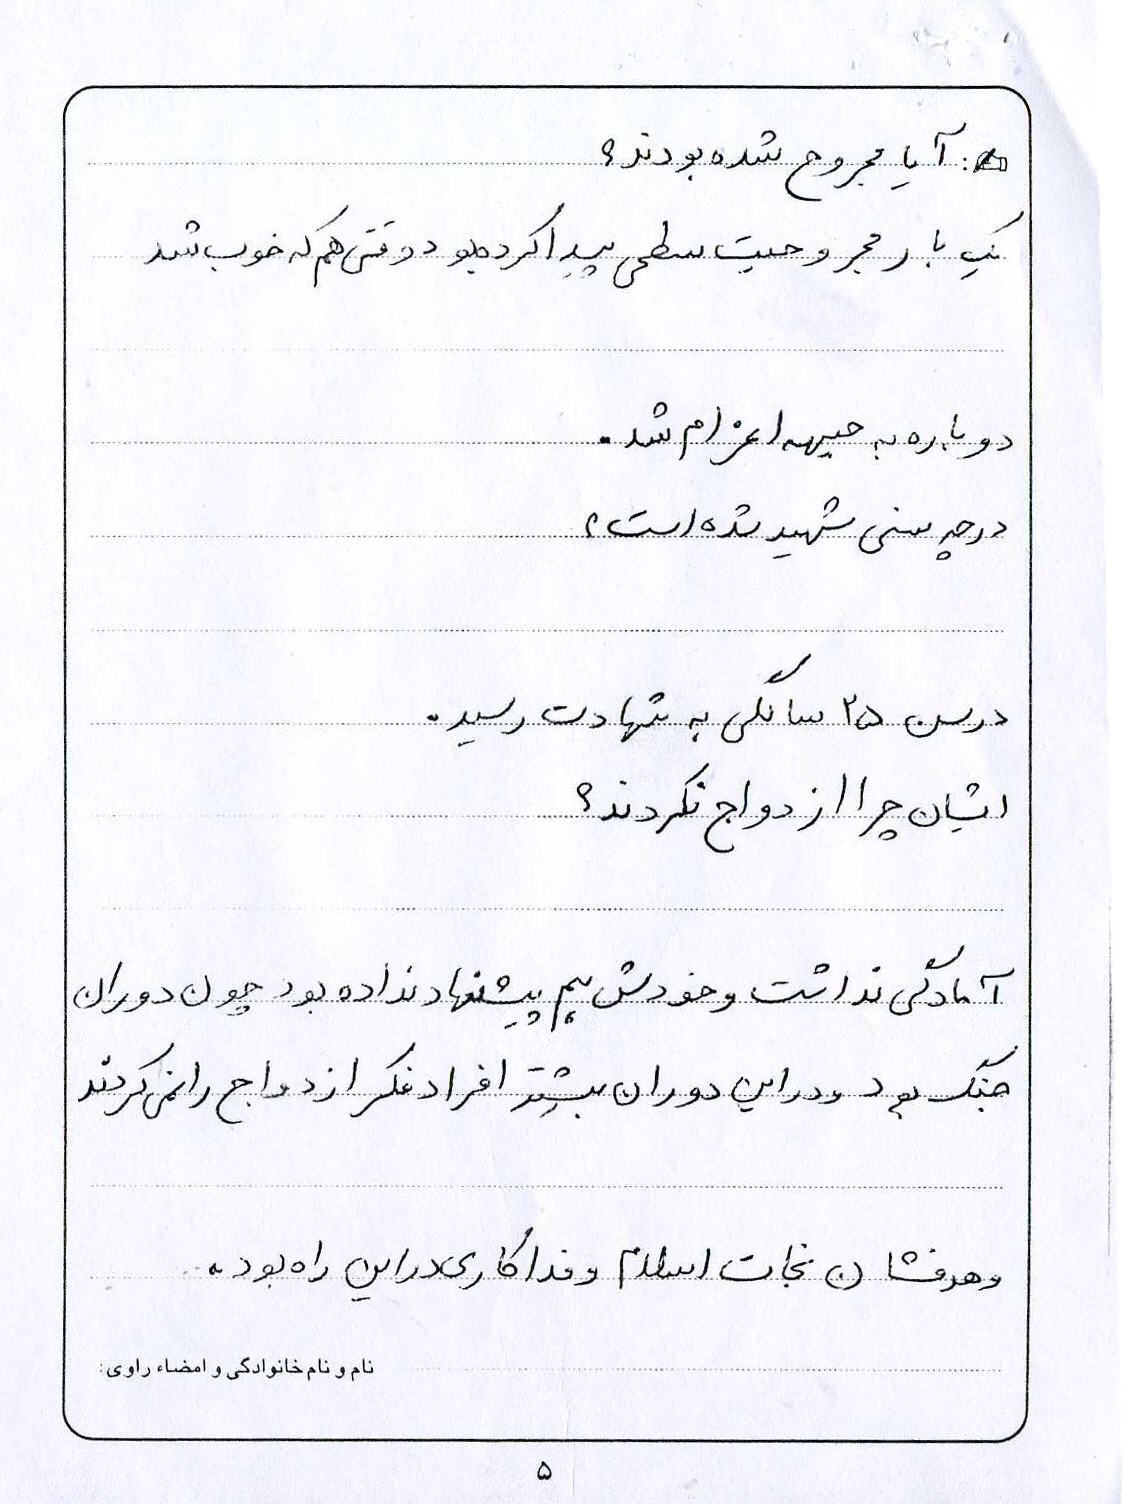 : آیا مجروح شده بودند؟
یک بار مجروحیت سطحی پیدا کرده بود و وقتی هم که خوب شد
دوباره به جبهه اعزام شد.
درچه سنی شهید شده است؟
درسن ۲۵ سالگی به شهادت رسید.
ایشان چرا ازدواج نکردند؟
آمادگی نداشت و خودش هم پیشنهاد نداده بود چون دوران
جنگ بود ودراین دوران بیشتر افراد فکر ازدواج را نمی کردند
وهدفشان نجات اسلام و فداکاری دراین راه بود.
نام و نام خانوادگی و امضاء راوی:
۵